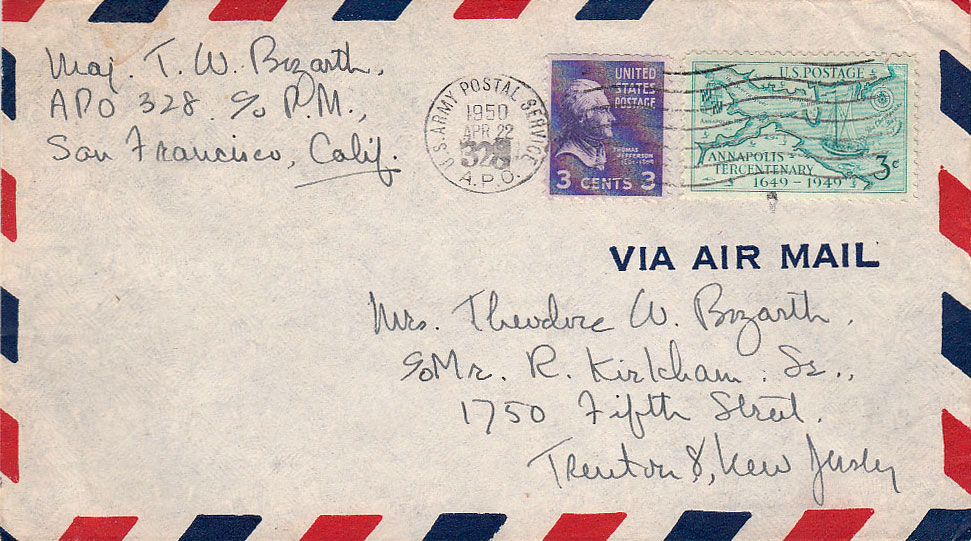 Maj. T. W. Bozarth,
APO 328 c/o P.M.,
San Francisco, Calif.
U.S. ARMY POSTAL SERVICE
1950
APR 22
328
A.P.O.
UNITED
STATES
POSTAGE
THOMAS
JEFFERSON
3 CENTS 3
U.S. POSTAGE
ANNAPOLIS
TERCENTENARY
1649-1949
3¢
VIA AIR MAIL
Mrs. Theodore W. Bozarth,
c/o Mr. R. Kirkham, Sr.,
1750 Fifth Street,
Trenton 8, New Jersey